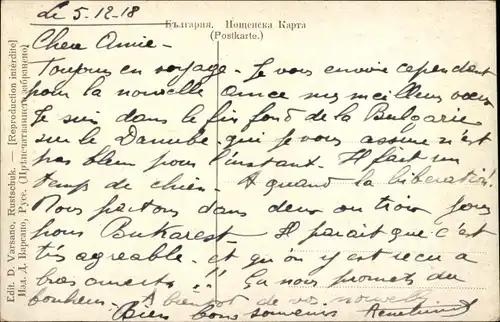 Le 5.12.18
България. Пощенска Карта
(Postkarte.)
Chere Amie -
Toujours en voyage - Je vous envoie cependant
pour la nouvelle année mes meilleurs vœux
Je suis dans le fin fond de la Bulgarie
sur le Danube qui je vous assure n'est
pas bleu pour l'instant. Il fait un
temps de chien. A quand la libération!
Nous partons dans deux ou trois jours
pour Bukarest - Il parait que c'est
très agreable et qu'on y est reçu a
bras ouverts !! Ça nous promets du
bonheur. A bientot de vos nouvelles
Bien bons souvenirs
Edit. D. Varsano, Rustschuk. — [Reproduction interdite]
Изд. Д. Варсано, Русе.